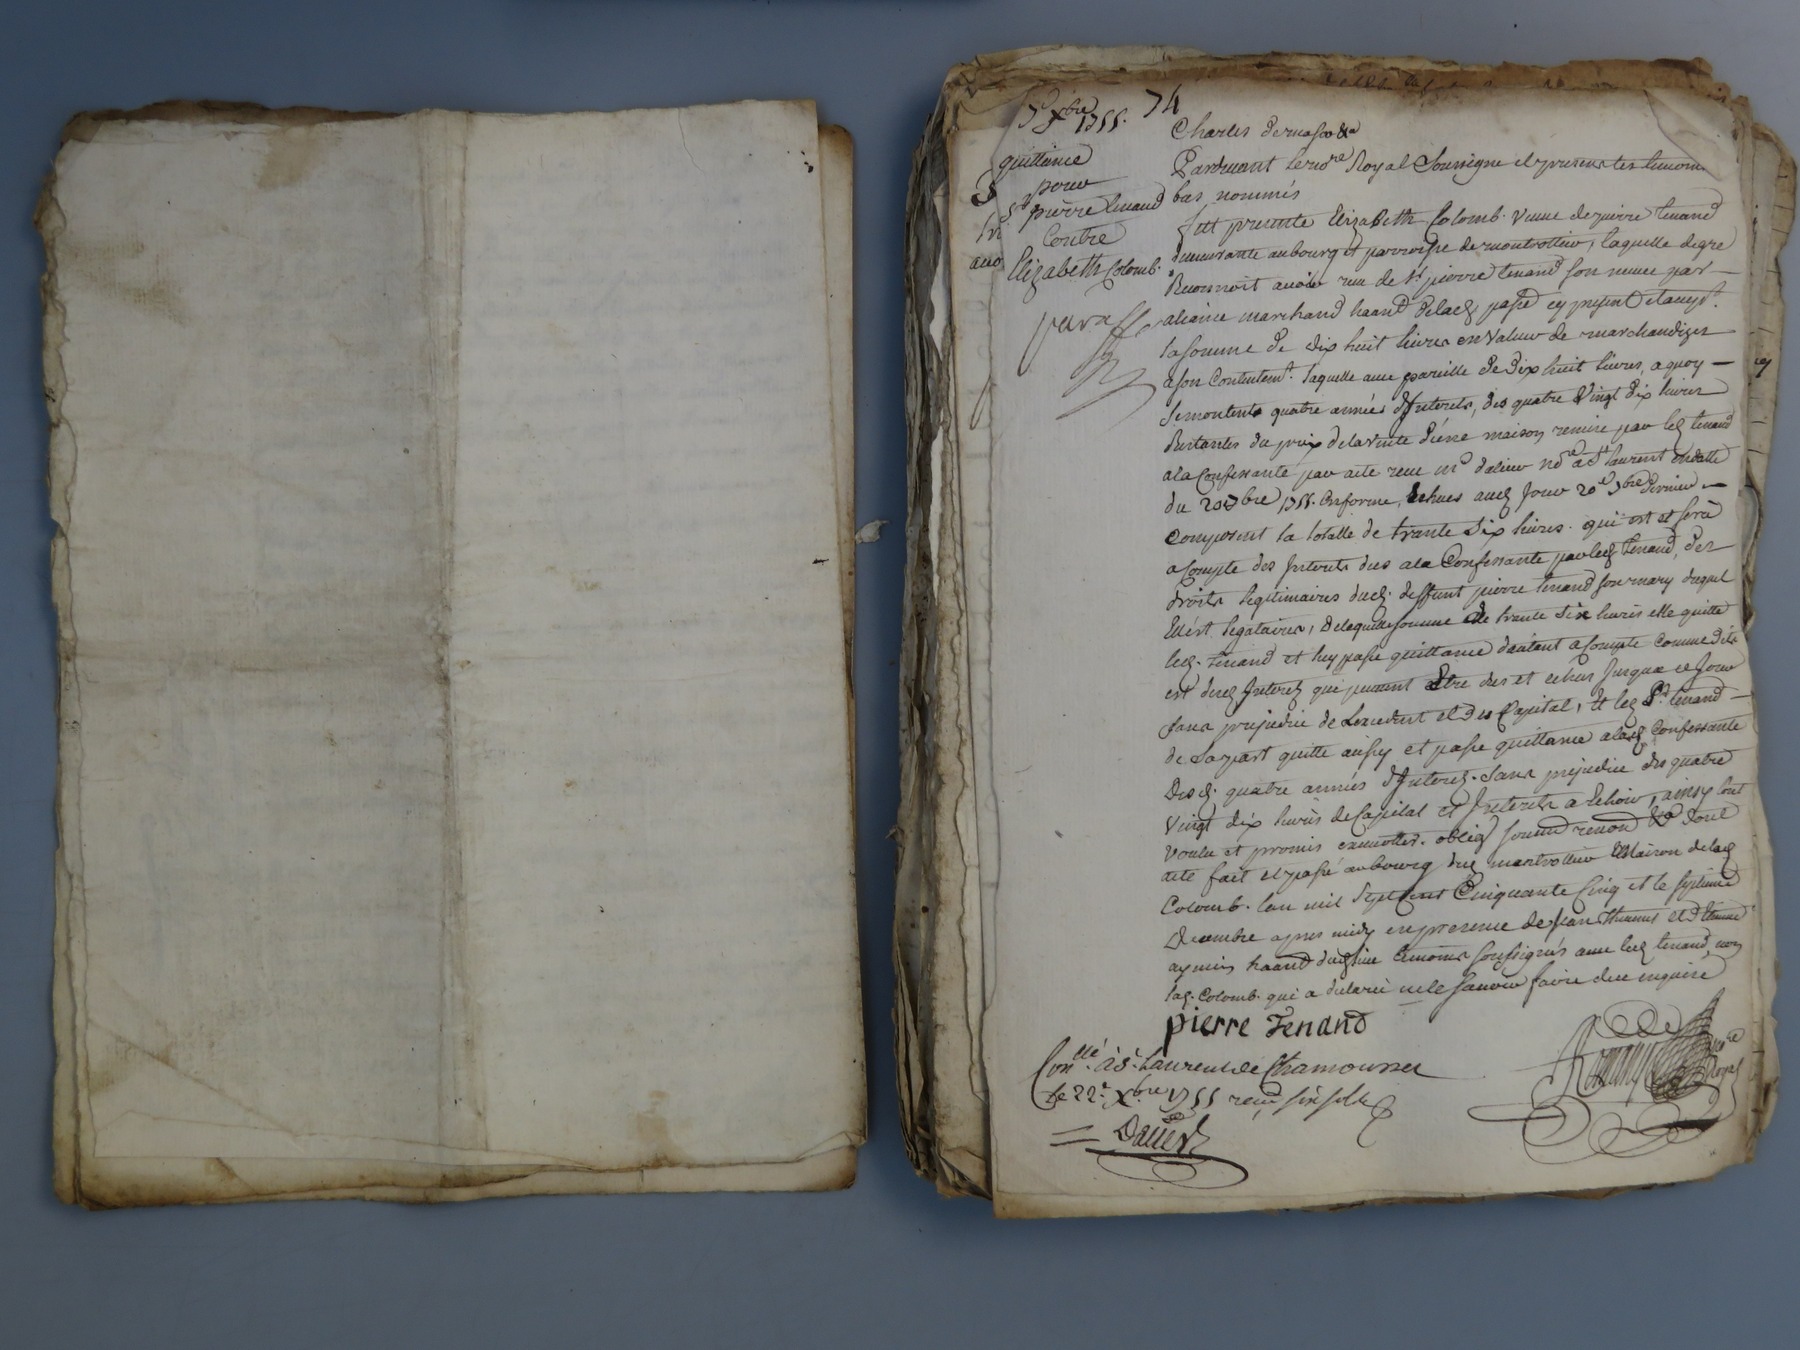 7e Xbre 1755. 74
quittance
pour
Sr pierre tenand
Contre
Elizabeth Colomb.
paraffé
Charles demasso &a
Pardevant le nore Royal Soussigné et presents les temoins
bas nommés
futt presente Elizabeth Colomb. veuve de pierre tenand
demeurante au bourg et parroisse de montrottier, laquelle de gré
Reconnoit avoir receu de Sr pierre tenand son neveu par
aliance marchand haant de lad parre cy present et accept.
la somme de dix huit livres en Valeur de marchandizes
a son Contentemt. laquelle avec pareille de dix huit livres, a quoy
Se montent quatre années d'Interets, des quatre Vingt dix livres
Restantes du prix de la vente d'une maison remise par led tenand
a la Confessante par acte receu me dalier nore a St laurent en datte
du 20 9bre 1755. en forme, Echues aud Jour 20e 9bre dernier
Composent la totalle de trante six livres. qui est et sera
a Compte des Interets dus a la Confessante par led tenand, des
droits legitimaires dud. deffunt pierre tenand son mary duquel
Ell'est legataire, de laquelle somme de trante Six livres elle quitte
led. tenand et luy passe quittance d'autant a Compte comme dit
est desd Interets qui peuvent Etre dus et echus Jusqua ce Jour
sans prejudice de Lexcedent et des Capital, Et led Sr. tenand
de Sa part quitte aussy et passe quittance a lad Confessante
Desd. quatre années d'Interets. Sans prejudice des quatre
Vingt dix livres de Capital et Interets a Echoir, ainsy l'ont
Voulu et promis executter. oblig soumd renond &a dont
acte fait et passé au bourg dud montrottier Maison de lad
Colomb. lan mil Sept Cent Cinquante Cinq et le septieme
Decembre apres midy en presence de Jean Thomas et d'Etienne
aymin haant dud lieu temoins soussignés avec led tenand, non
lad. Colomb. qui a declaré ne le sçavoir faire de ce enquise
pierre Tenand
Conlle. à St. Laurent de Chamousset
le 22e. Xbre 1755 reçu six sols
Dalier
nore
Royal